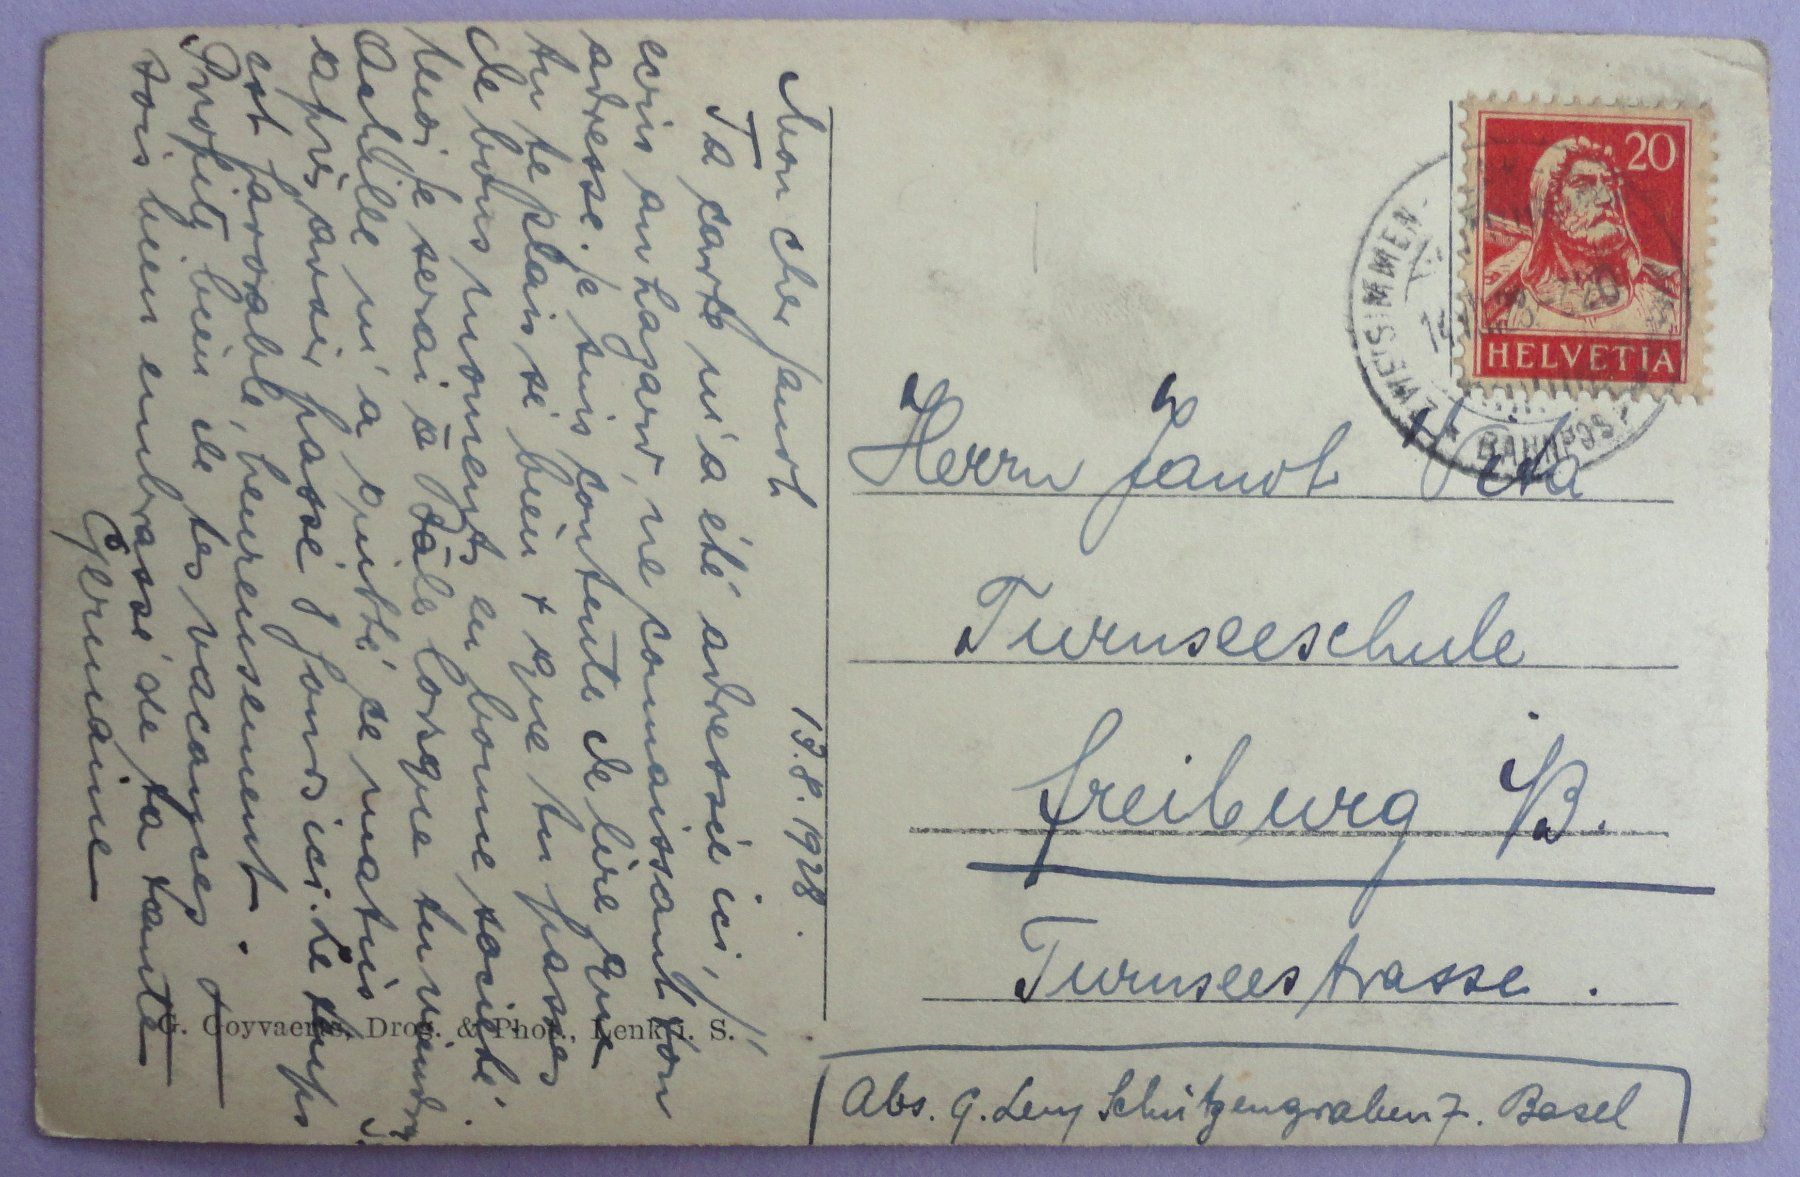 13.8.1928.
Mon cher Janot
Ta carte m'a été adressée ici, j'
ecris au hagard, ne connaissant ton
adresse. Je suis contente de lire que
tu te plais si bien + que tu passes
de bons moments en bonne société.
Moi je serai à Bâle lorsque tu viendra
Achille m'a quitté ce matin
après avoir passé 8 jours ici. Le temps
est favorable, heureusement.
Profite bien de tes vacances +
sois bien embrassé de ta tante
Germaine
G. Coyvaerts, Drog. & Phot., Lenk i. S.
HELVETIA
20
ZWEISIMMEN-
BAHNPOST
Herrn Janot
Turnseeschule
Freiburg i/B.
Turnseestrasse.
Abs. G. Levy Schützengraben 7. Basel